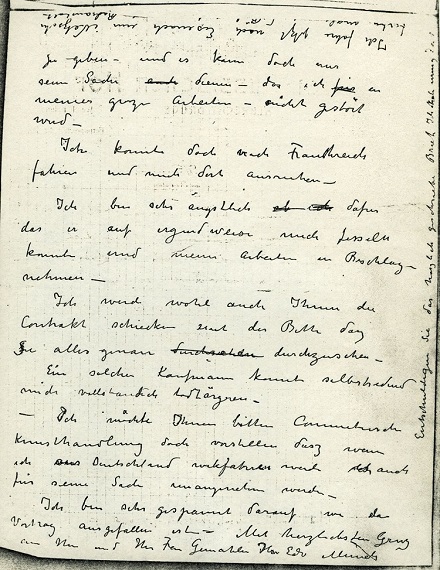 zu geben – und es kann doch nur
sein Sache dienen – das ich in
meiner grozen Arbeiten – nicht gestört
werd –
Ich konnte doch nach Frankreich
fahren und mich dort ausruhen –
Ich bin sehr ängstlich dafür
das er auf irgend weise mich fesseln
konnte und meine Arbeiten in Beschlag-
nehmen –
Ich werd wohl auch Ihnen die
Contrakt schicken mit der Bitte daz
Sie alles genau durchzusehen –
Ein solcher Kaufmann konnte selbstredend
mich vollständich
– Ich möchte Ihnen bitten Commetersche
Kunsthandlung doch vorstellen dasz wenn
ich aus Deutschland werd ich auch
für seine Sache unangenehm werden –
Ich bin sehr gespannt darauf wie der
Vortrag ausgefallen ist – Mit herzlichsten Grusz
an Ihn und Ihr Frau Gemahlin Ihr Edv Munch
Entschuldigen Sie das
Ich fahre jetzt nach